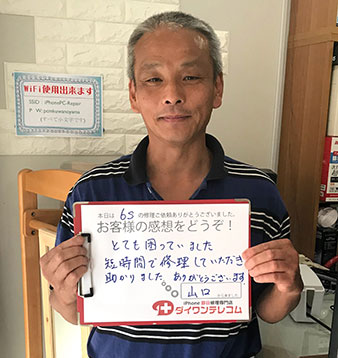 WiFi使用出来ます
SSID : iPhonePC-Repair
(すべて小文字です)
本日は 6S の修理ご依頼ありがとうございました。
お客様の感想をどうぞ!
とても困っていました
短時間で修理していただき
助かりました ありがとうございます
山口
iPhone 即日修理専門店
ダイワンテレコム